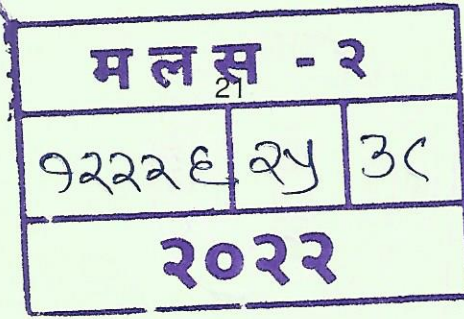 म ल स - २
21
१२२२६ २५ ३८
२०२२